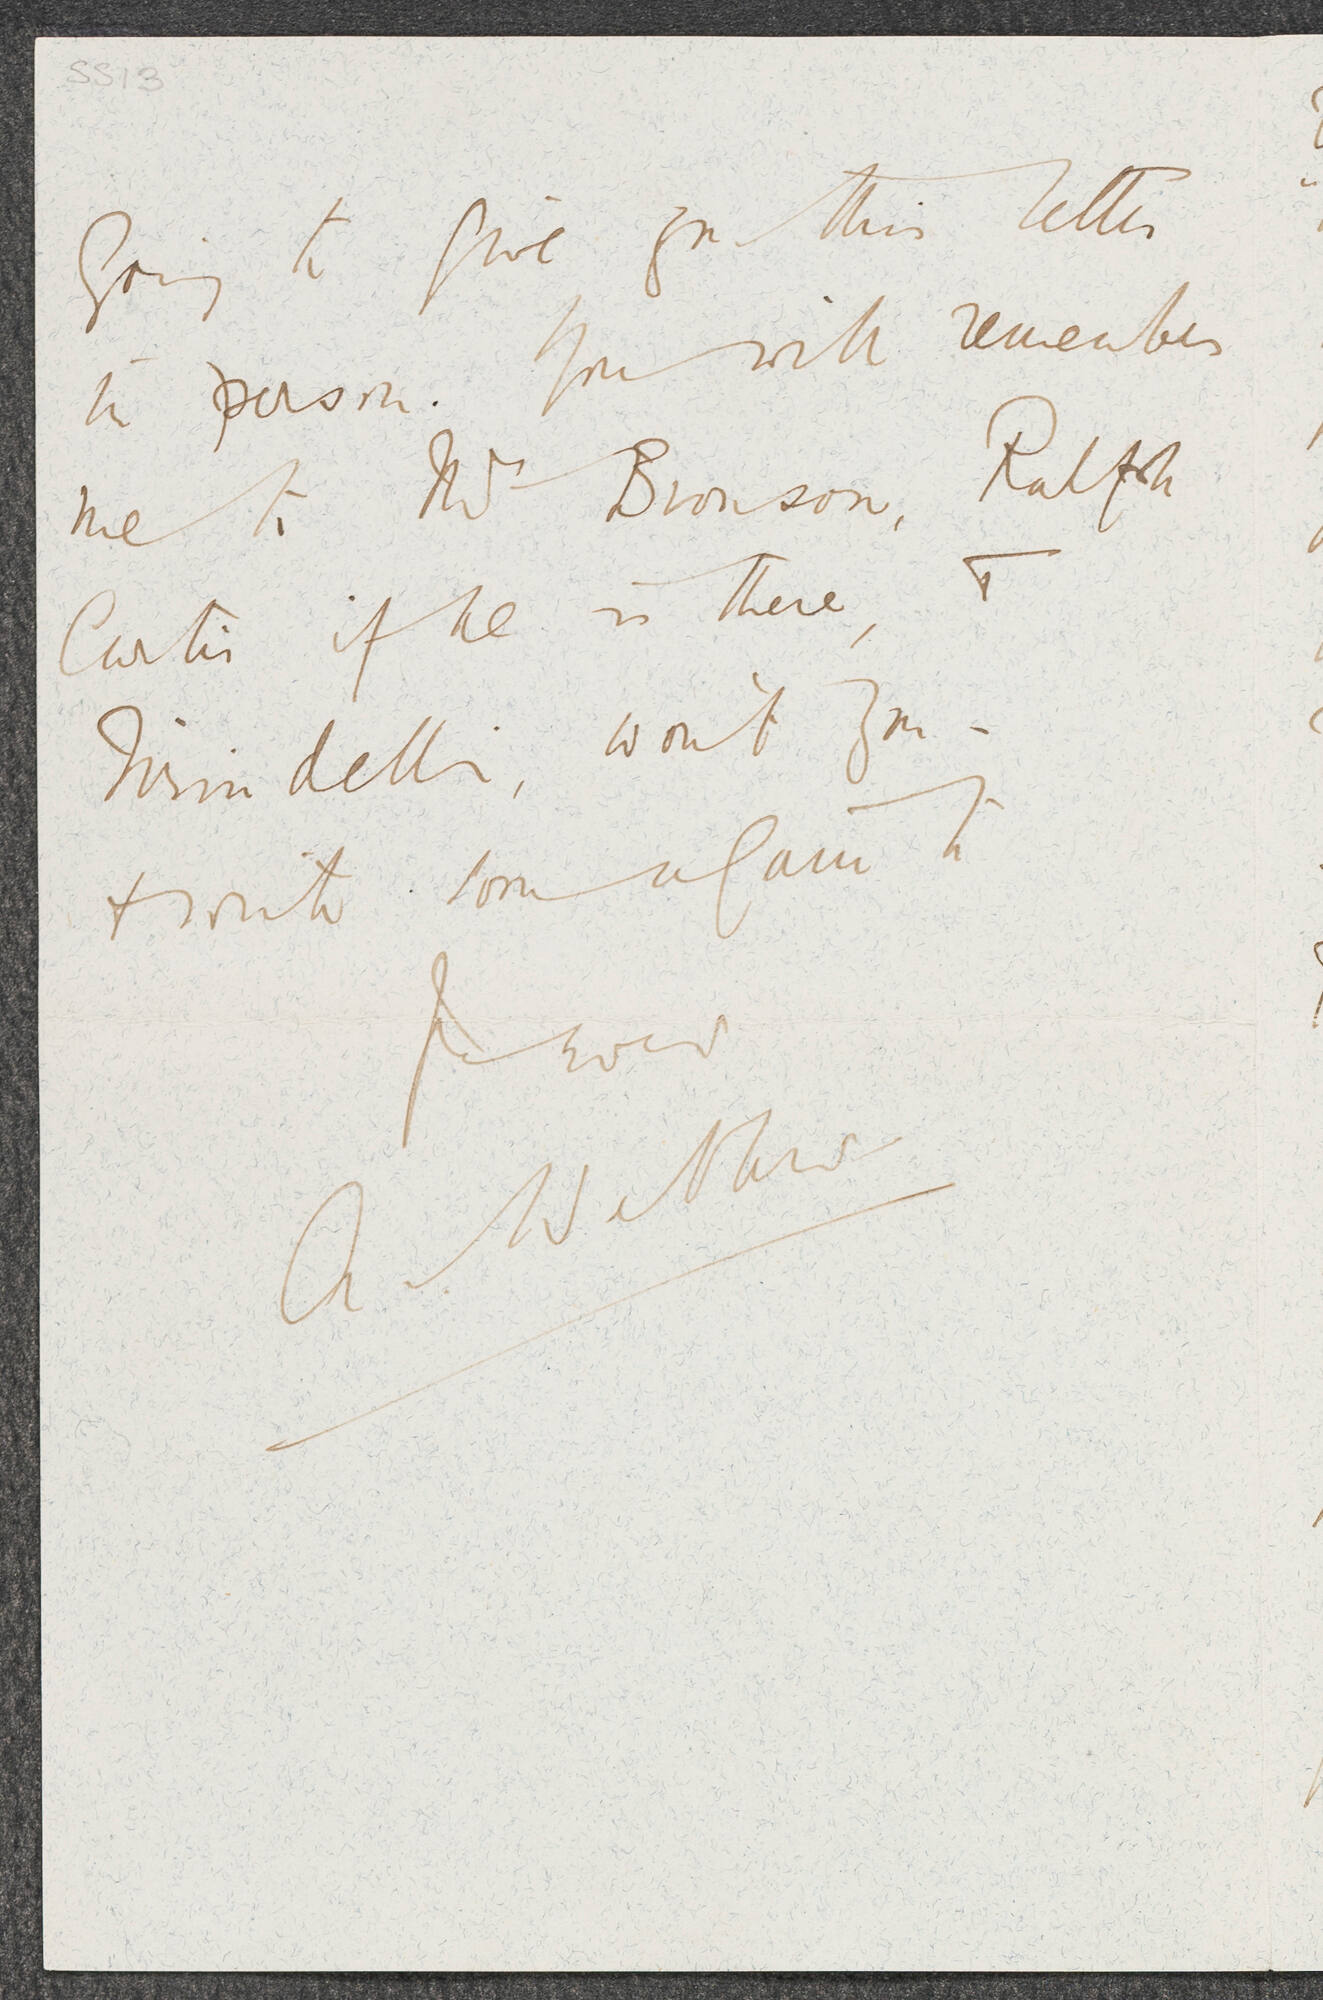 SS13
going to give you this letter
in person. You will remember
me to Mrs Bronson, Ralph
Curtis if he is there, &
Tirindelli, won't you -
+ write soon again to
Yr ever
A.